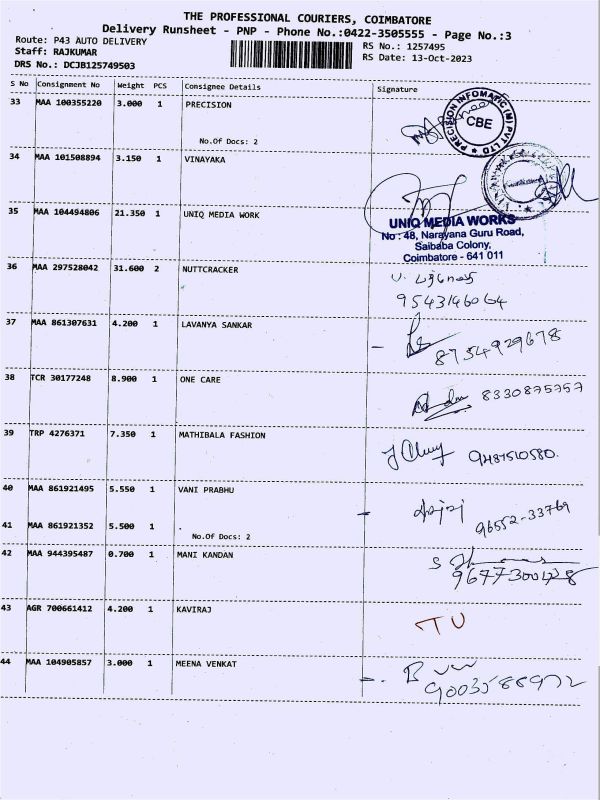 THE PROFESSIONAL COURIERS, COIMBATORE
Delivery Runsheet - PNP - Phone No.:0422-3505555 - Page No.:3
Route: P43 AUTO DELIVERY
RS No.: 1257495
Staff: RAJKUMAR
RS Date: 13-Oct-2023
DRS No.: DCJB125749503
S No Consignment No Weight PCS Consignee Details Signature
33 MAA 100355220 3.000 1 PRECISION
PRECISION INFOMATIC (M) PVT LTD
CBE
No.Of Docs: 2
34 MAA 101508894 3.150 1 VINAYAKA
35 MAA 104494806 21.350 1 UNIQ MEDIA WORK
UNIQ MEDIA WORKS
No : 48, Narayana Guru Road,
Saibaba Colony,
Coimbatore - 641 011
36 MAA 297528042 31.600 2 NUTTCRACKER
9543146064
37 MAA 861307631 4.200 1 LAVANYA SANKAR
8754929678
38 TCR 30177248 8.900 1 ONE CARE
8330875757
39 TRP 4276371 7.350 1 MATHIBALA FASHION
9487510580.
40 MAA 861921495 5.550 1 VANI PRABHU
96552-33769
41 MAA 861921352 5.500 1
No.Of Docs: 2
42 MAA 944395487 0.700 1 MANI KANDAN
9677300128
43 AGR 700661412 4.200 1 KAVIRAJ
TU
44 MAA 104905857 3.000 1 MEENA VENKAT
9003588972